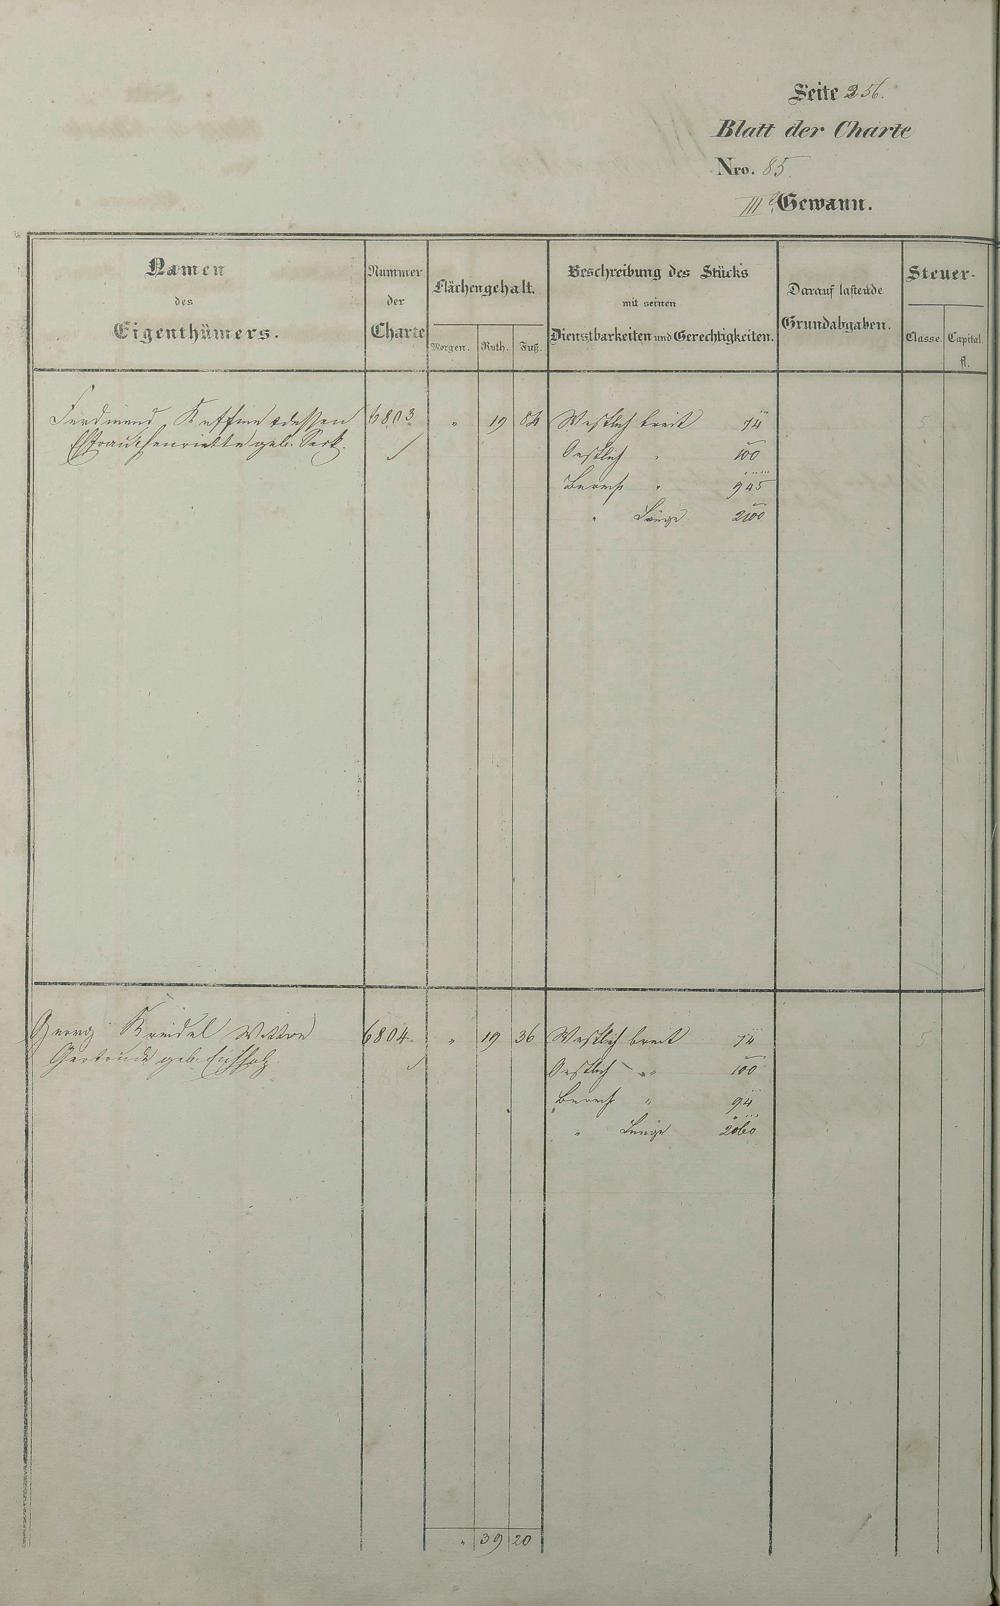 Seite 256.
Blatt der Charte
Nro. 85.
III Gewann.
Namen
des
Eigenthümers.
Nummer
der
Charte
Flächengehalt.
Morgen. Ruth. Fuß.
Beschreibung des Stücks
mit seinen
Dienstbarkeiten und Gerechtigkeiten.
Darauf lastende
Grundabgaben.
Steuer-
Classe. Capital.
fl.
Ferdinand dessen 6803 " 19 84 Westlich breit 94
Ehefrau Henriette geb. Oestlich " 100
" 945
" Länge 2100
Georg Kreidel Wittwe 6804 " 19 36 Westlich breit 94
Gertrude geb. Oestlich " 100
" 94
" Länge 2060
" 39 20